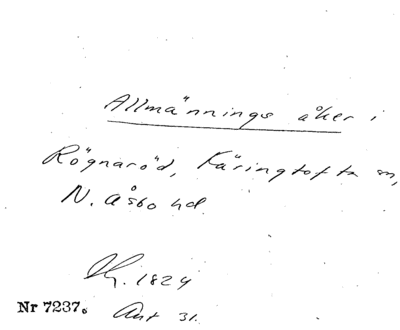 Allmännings åker i
Rögnaröd, Käringtofta sn,
N. Åsbo hd.
1824
Nr 7237. Ant 31.